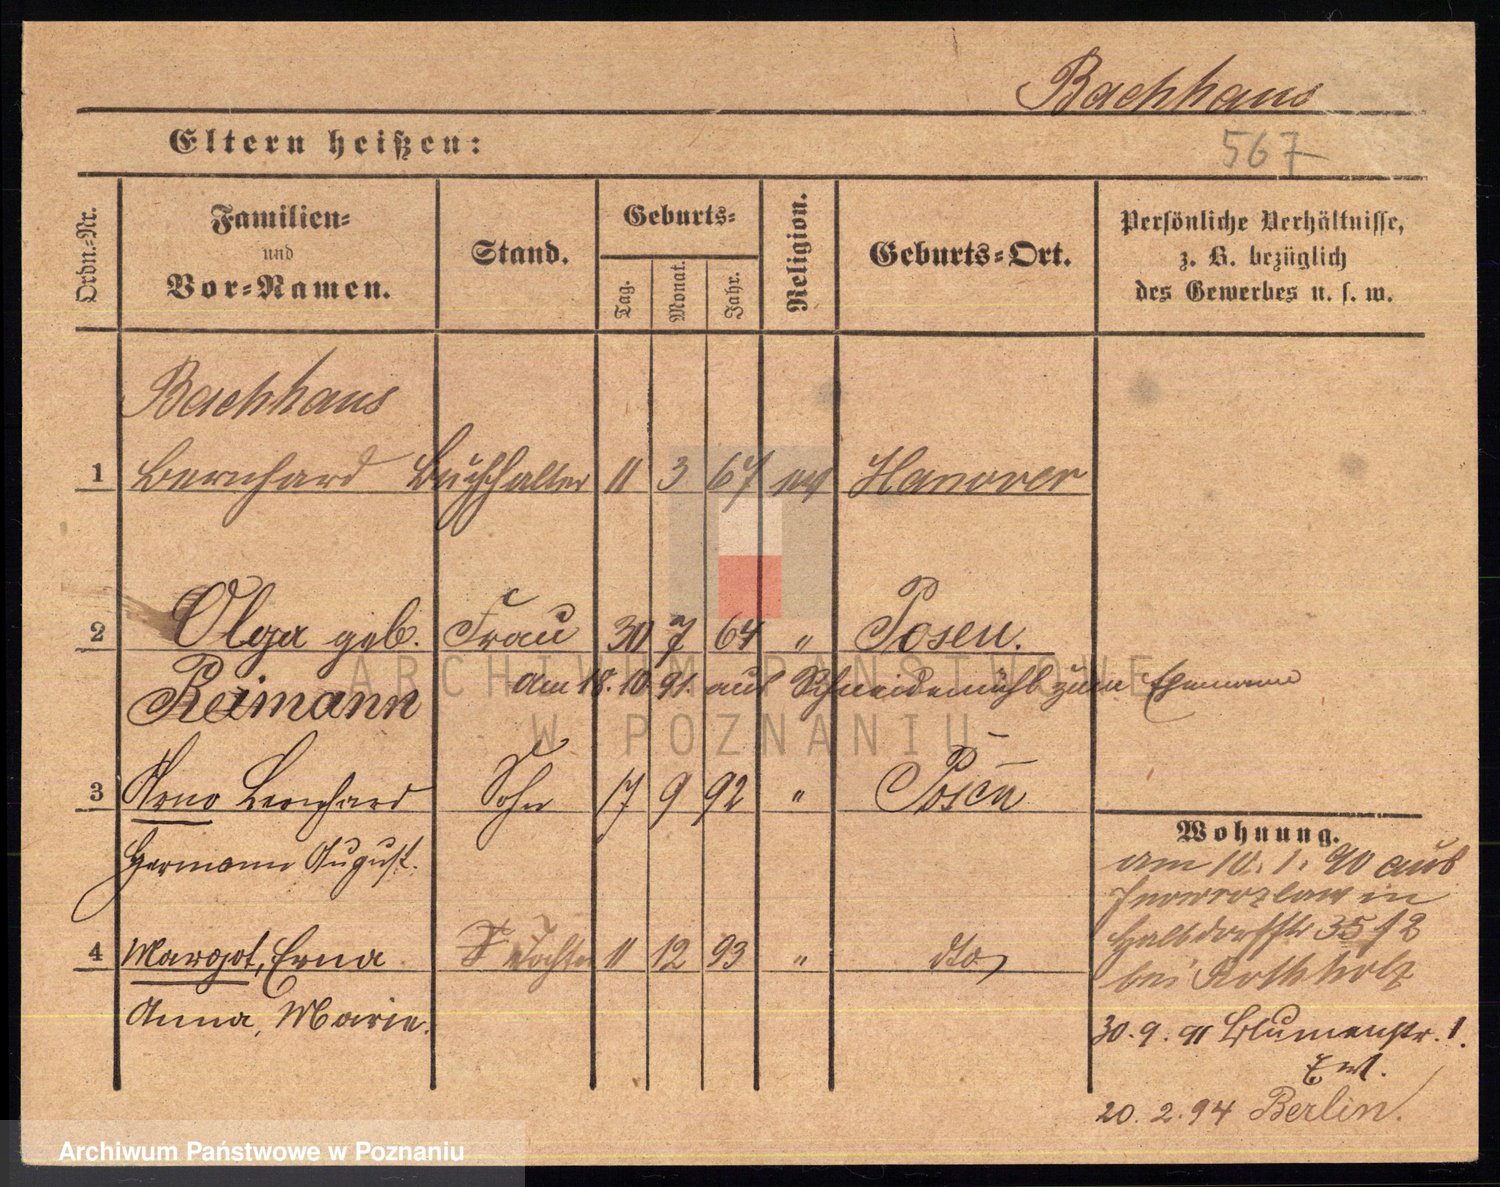 Bachhaus
Eltern heißen:
567
Ordn.-Nr.
Familien-
und
Vor-Namen.
Stand.
Geburts-
Tag.
Monat.
Jahr.
Religion.
Geburts-Ort.
Persönliche Verhältnisse,
z. B. bezüglich
des Gewerbes u. s. w.
Bachhaus
1 Bernhard Buchhalter 11 3 67 ev Hanover
2 Olga geb. Frau 30 7 64 " Posen.
Reimann am 18.10.91. aus Schneidemühl zum Ehemann
3 Arno Bernhard Sohn 17 9 92 " Posen
Hermann August.
4 Margot, Erna Tochter 11 12 93 " dto
Anna, Marie.
Wohnung.
am 10.1.90 aus
Inowrozlaw in
Halbdorfstr 35
bei Rothholz
30.9.91 Blumenstr. 1.
20.2.94 Berlin.
ARCHIWUM PAŃSTWOWE
W POZNANIU
Archiwum Państwowe w Poznaniu